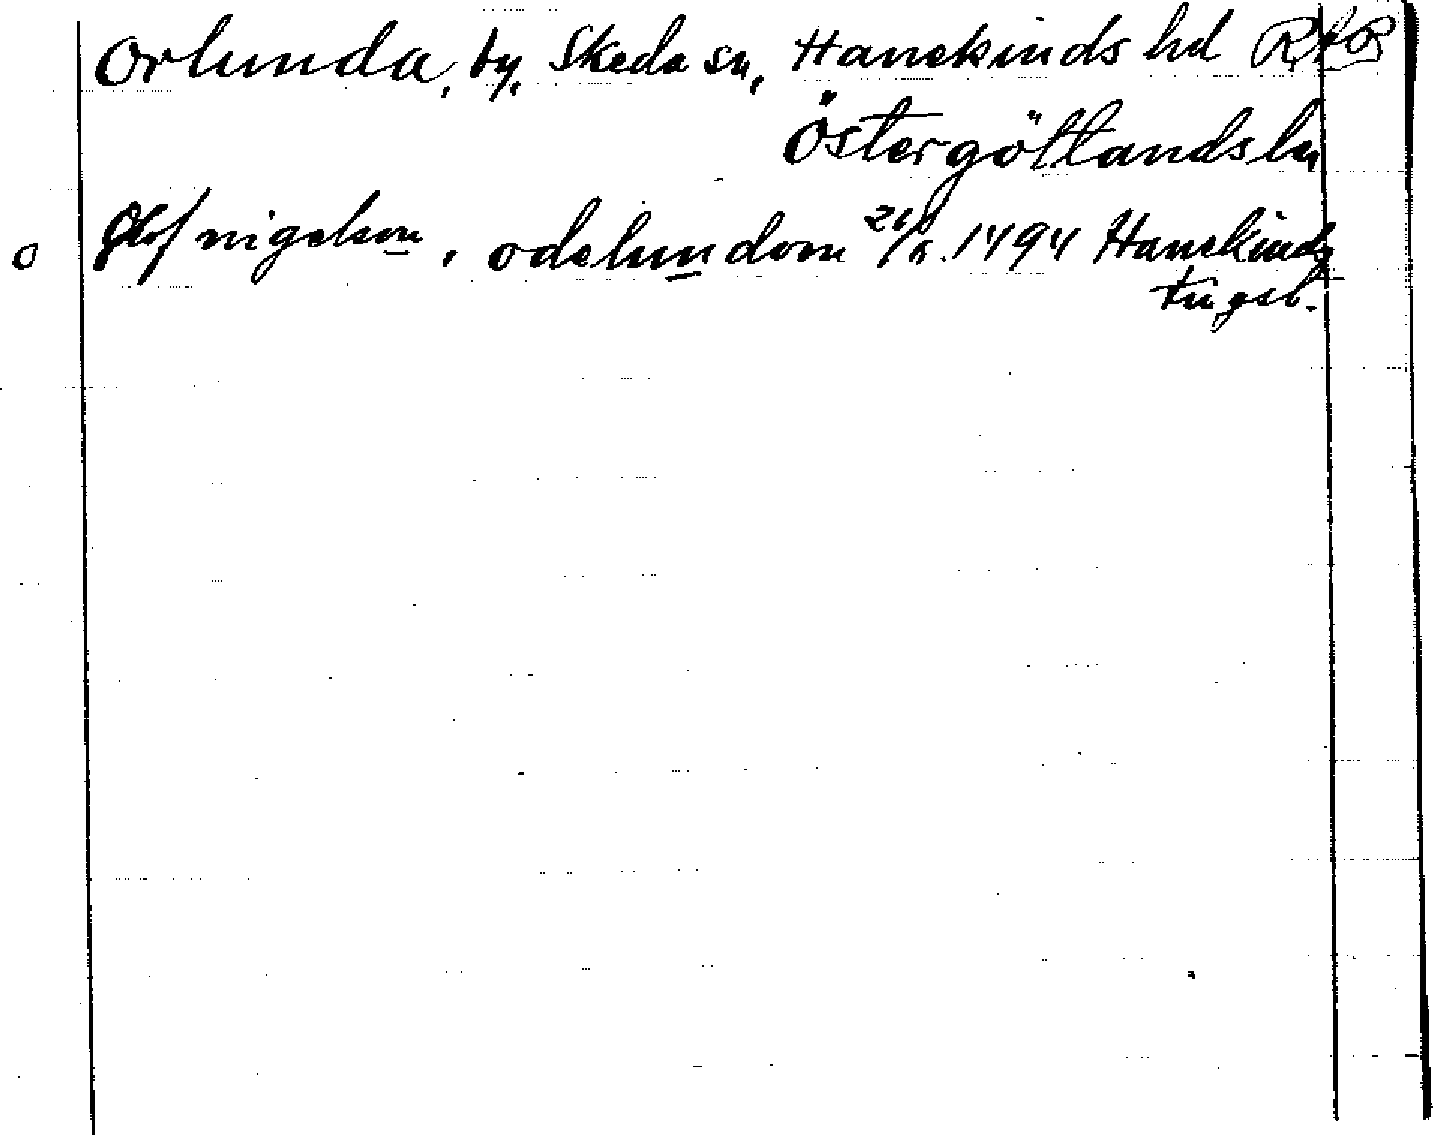 Orlunda, by, Skeda sn, Hanekinds hd
Östergötlands ln
o Olof nigelson, odelundom 1494 Hanekinds
tingsl.